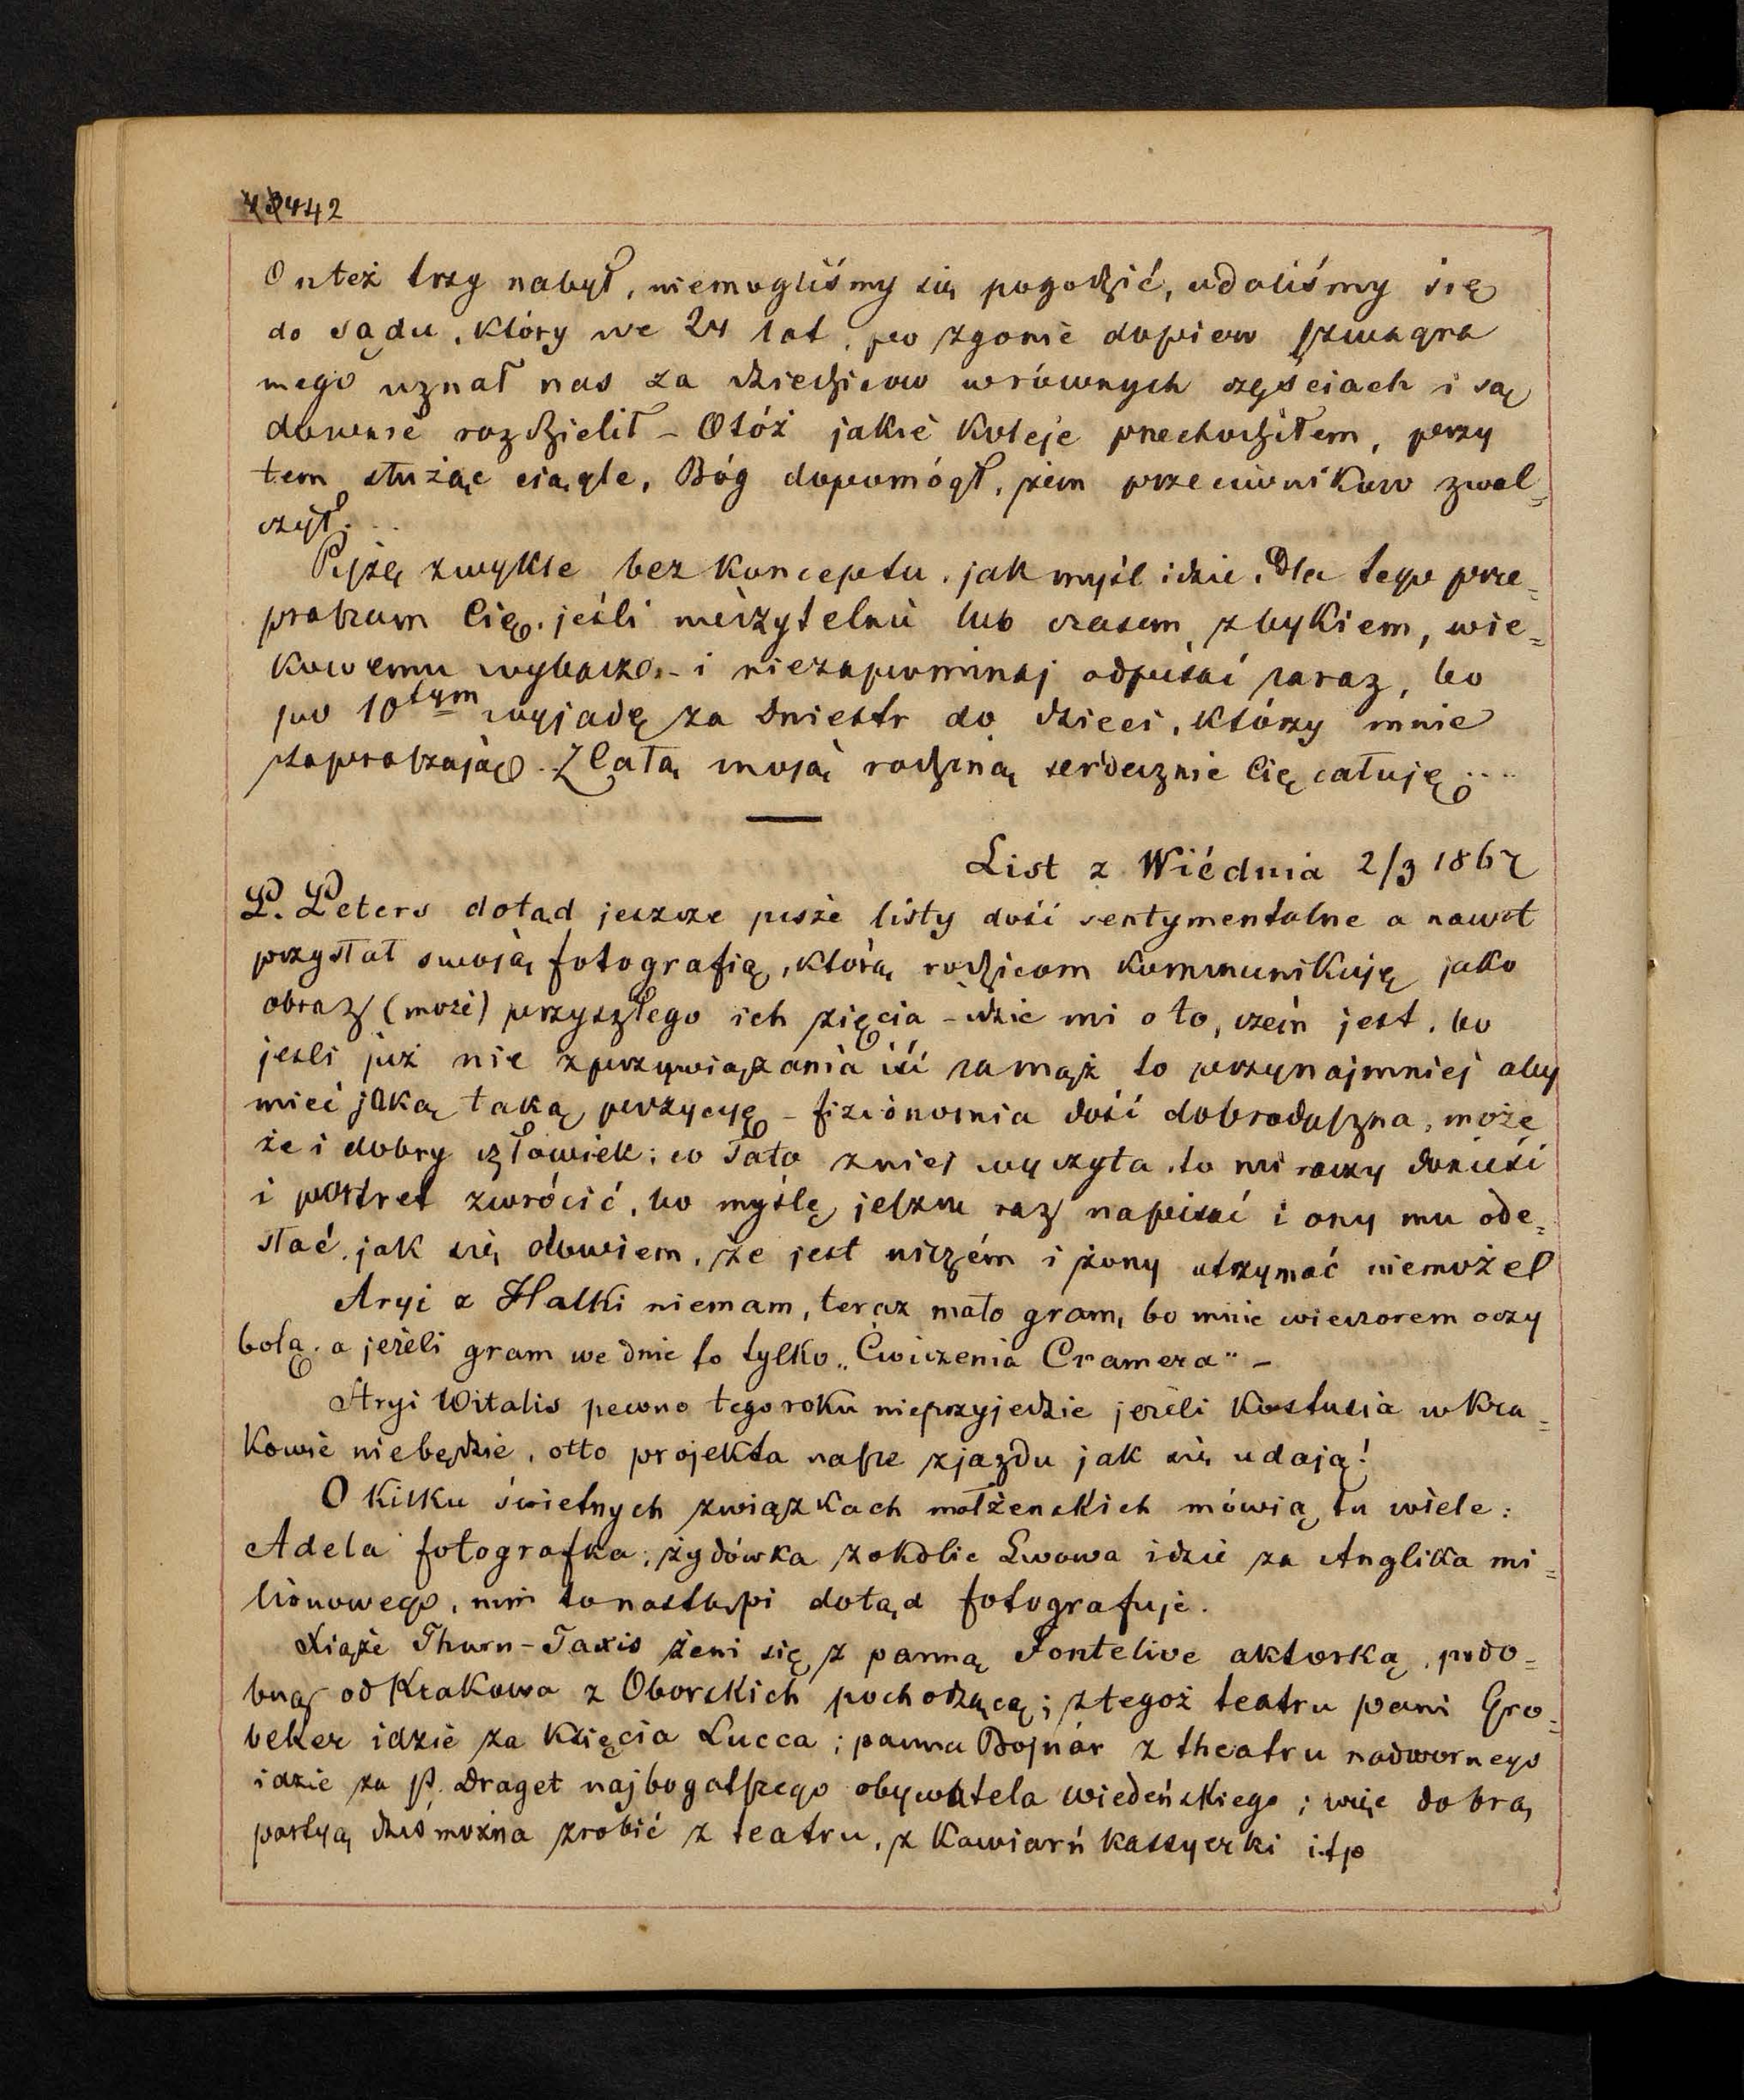 442
On też trzy nabył, niemogliśmy się pogodzić, udaliśmy się
do sądu, który we 24 lat, po zgonie dopiero szwagra
mego uznał nas za dziedziców wrównych częściach i są
downie rozdzielił – Otóż jakie koleje przechodziłem, przy
tem służąc ciągle, Bóg dopomógł, żem przeciwników zwal=
czył...
Piszę zwykle bez konceptu, jak myśl idzie. Dla tego prze=
praszam Cię, jeśli nieczytelnie lub czasem z bykiem, wie=
kowemu wybacz. – i niezapominaj odpisać zaraz, bo
po 10tym wyjadę za Dniestr do dzieci, którzy mnie
zapraszają. Z Całą moją rodziną serdecznie Cię całuję....
List z Wiédnia 2/3 1867
P. Peters dotąd jeszcze pisze listy dość sentymentalne a nawet
przysłał swoją fotografią, którą rodzicom kommunikuję jako
obraz (może) przyszłego ich zięcia – idzie mi o to, czem jest, bo
jeśli już nie zprzywiązania iść zamąż to przynajmniej aby
mieć jaką taką pozycyę – fizionomia dość dobroduszna, może
że i dobry człowiek; co Tato zniej wyczyta, to mi raczy donieść
i portret zwrócić, bo myślę jeszcze raz napisać i ony mu ode=
słać, jak się dowiem, że jest niczém i żony utrzymać niemoże!
Aryi z Halki niemam, teraz mało gram, bo mnie wieczorem oczy
bolą, a jeżeli gram we dnie to tylko „Cwiczenia Cramera" –
Stryi Witalis pewno tego roku nieprzyjedzie jeżeli Kostusia w Kra=
kowie niebędzie, otto projekta nasze zjazdu jak się udają!
O kilku świetnych związkach małżenskich mówią tu wiele:
Adela fotografka, żydówka z okolic Lwowa idzie za Anglika mi=
lionowego, nim to nastąpi dotąd fotografuje.
Xiąże Thurn-Taxis żeni się z panną Fontelive aktorką, podo=
bną od Krakowa z Oborskich pochodzącą; z tegoż teatru pani Gro=
beker idzie za Księcia Lucca; panna Bojnár z theatru nadwornego
idzie za P. Draget najbogatszego obywatela wiedeńskiego; więc dobrą
partyą dziś można zrobić z teatru, z kawiarń kassyerki itp